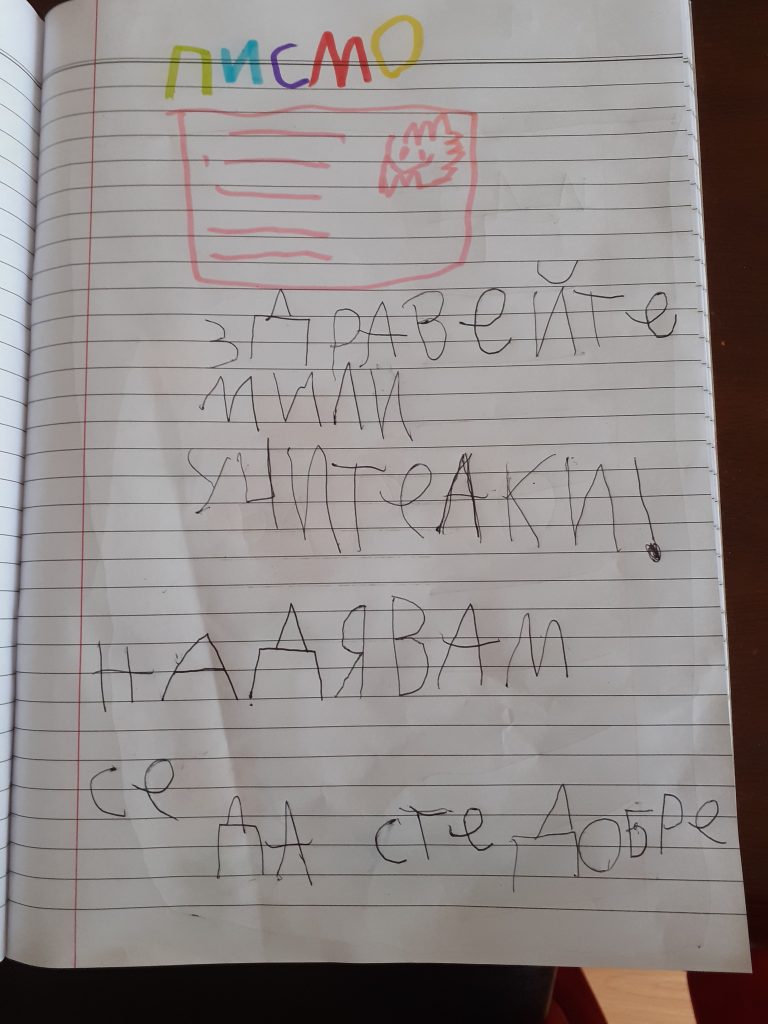 ПИСМО
ЗДРАВЕЙТЕ
МИЛИ
УЧИТЕАКИ!
НАДЯВАМ
СЕ
ДА СТЕ ДОБРЕ